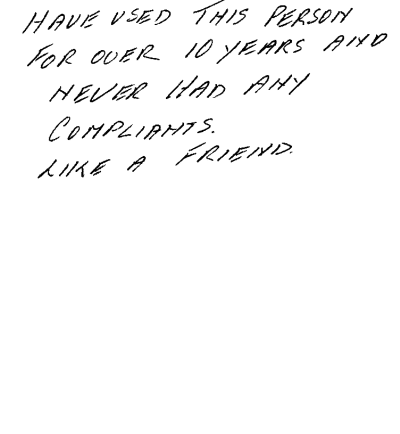 HAVE USED THIS PERSON
FOR OVER 10 YEARS AND
NEVER HAD ANY
COMPLIANTS.
LIKE A FRIEND.